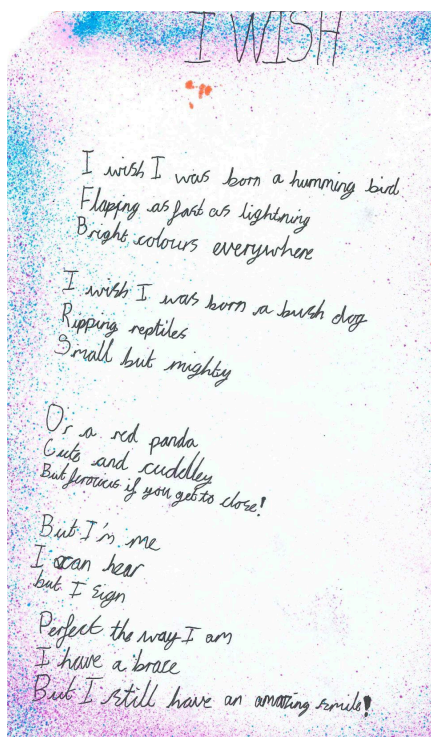 I WISH
I wish I was born a humming bird
Flapping as fast as lightning
Bright colours everywhere
I wish I was born a bush dog
Ripping reptiles
Small but mighty
Or a red panda
Cute and cuddley
But ferocius if you get to close!
But I'm me
I can hear
but I sign
Perfect the way I am
I have a brace
But I still have an amazing smile!